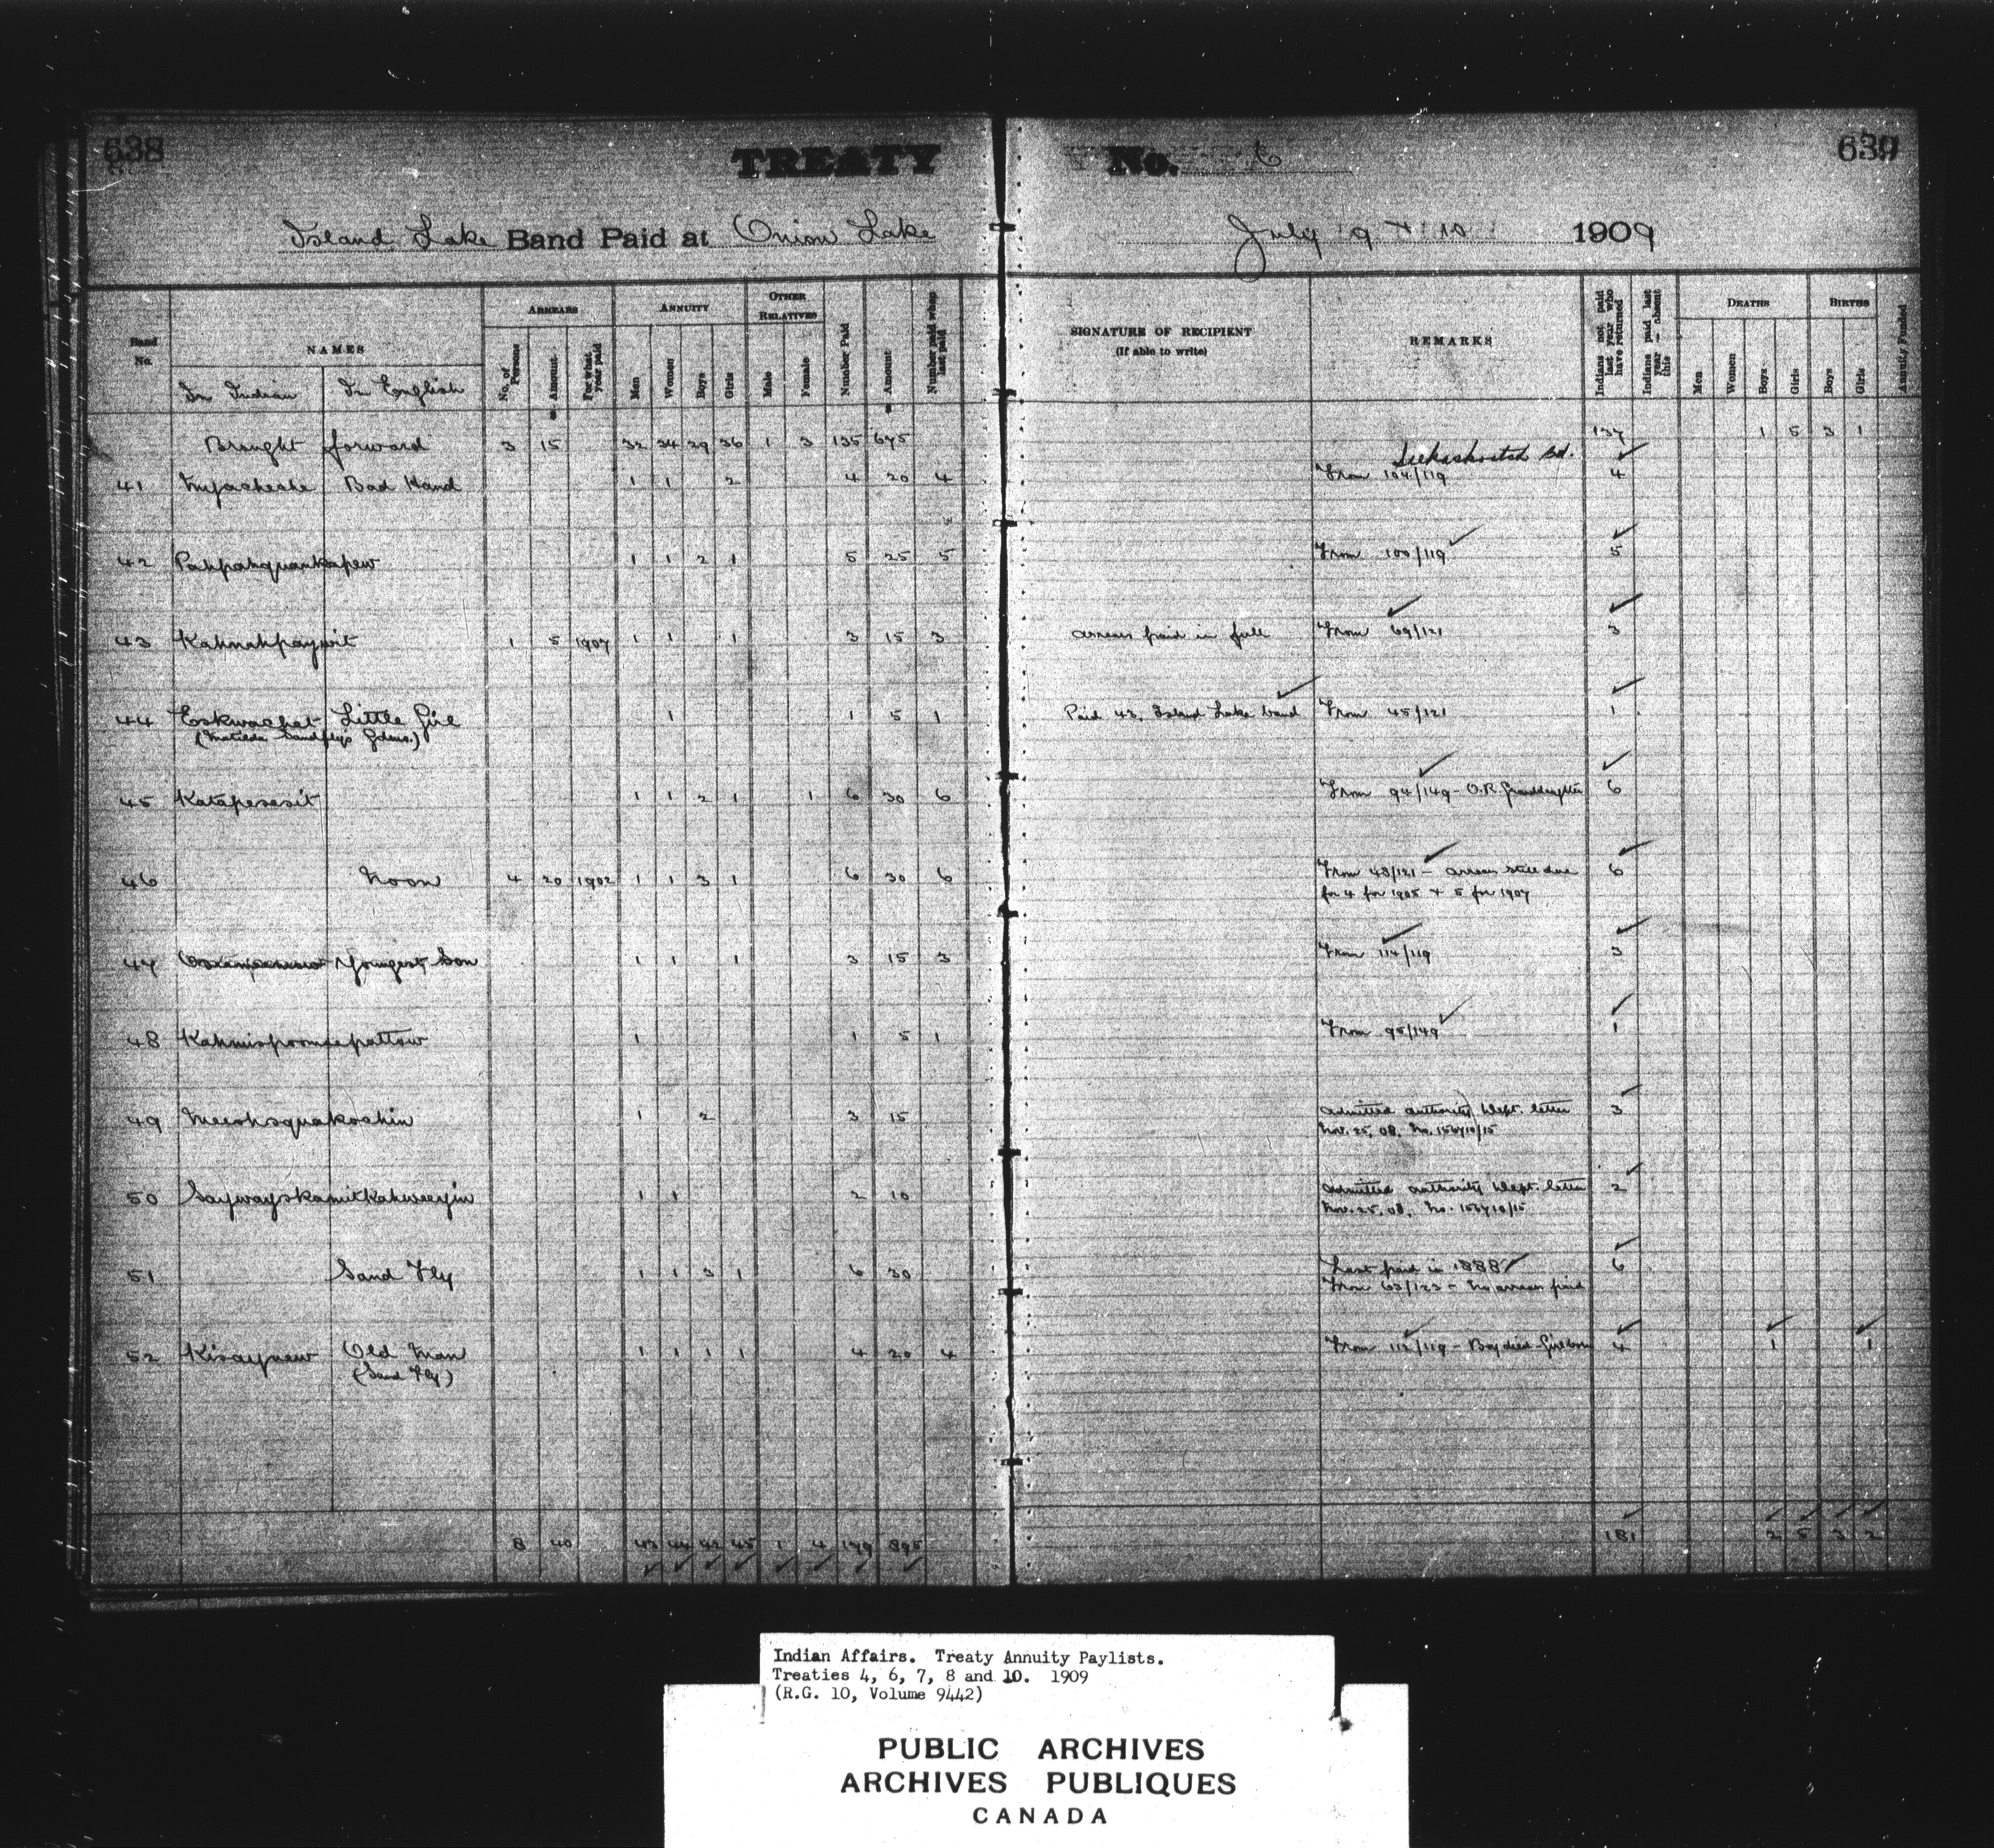 638
639
TREATY No. 6
Island Lake Band Paid at Onion Lake July 9 + 10 1909
Band No.
NAMES
In Indian In English
ARREARS
No. of Persons Amount For what year paid
ANNUITY
Men Women Boys Girls
OTHER RELATIVES
Male Female
Number Paid Amount Number paid when last paid
SIGNATURE OF RECIPIENT
(If able to write)
REMARKS
Indians not paid last year who have returned
Indians paid last year — absent this
DEATHS
Men Women Boys Girls
BIRTHS
Boys Girls
Annuity Funded
Brought forward 3 15 32 34 29 36 1 3 135 675 137 1 5 3 1
41 Bad Hand 1 1 2 4 20 4 Seekaskootch Bd. From 104/119 4
42 Pahpahquankapew 1 1 2 1 5 25 5 From 100/119 5
43 Kahnahpaywit 1 5 1907 1 1 1 3 15 3 arrears paid in full From 69/121 3
44 Eskwachet Little Girl 1 1 5 1 Paid 43, Island Lake band From 45/121 1
(Matilda Sandfly's Gdms.)
45 Katapesesit 1 1 2 1 1 6 30 6 From 94/149 - O.R. Granddaughter 6
46 Noon 4 20 1902 1 1 3 1 6 30 6 From 48/121 - arrears still due 6
for 4 for 1905 + 5 for 1907
47 Youngest Son 1 1 1 3 15 3 From 114/119 3
48 Kahmispoomsepattow 1 1 5 1 From 95/149 1
49 Meeohsquakoshin 1 2 3 15 admitted authority Dept. letter 3
Nov. 25, 08. No. 156710/15
50 Saywayskamitkahweeyin 1 1 2 10 admitted authority Dept. letter 2
Nov. 25, 08. No. 156710/15
51 Sand Fly 1 1 3 1 6 30 Last paid in 1888 6
From 63/123 - No arrears paid
52 Kisaynew Old Man 1 1 1 1 4 20 4 From 112/119 - Boy died - Girl born 4 1 1
(Sand Fly)
8 40 43 44 42 45 1 4 179 895 181 2 5 3 2
Indian Affairs. Treaty Annuity Paylists.
Treaties 4, 6, 7, 8 and 10. 1909
(R.G. 10, Volume 9442)
PUBLIC ARCHIVES
ARCHIVES PUBLIQUES
CANADA